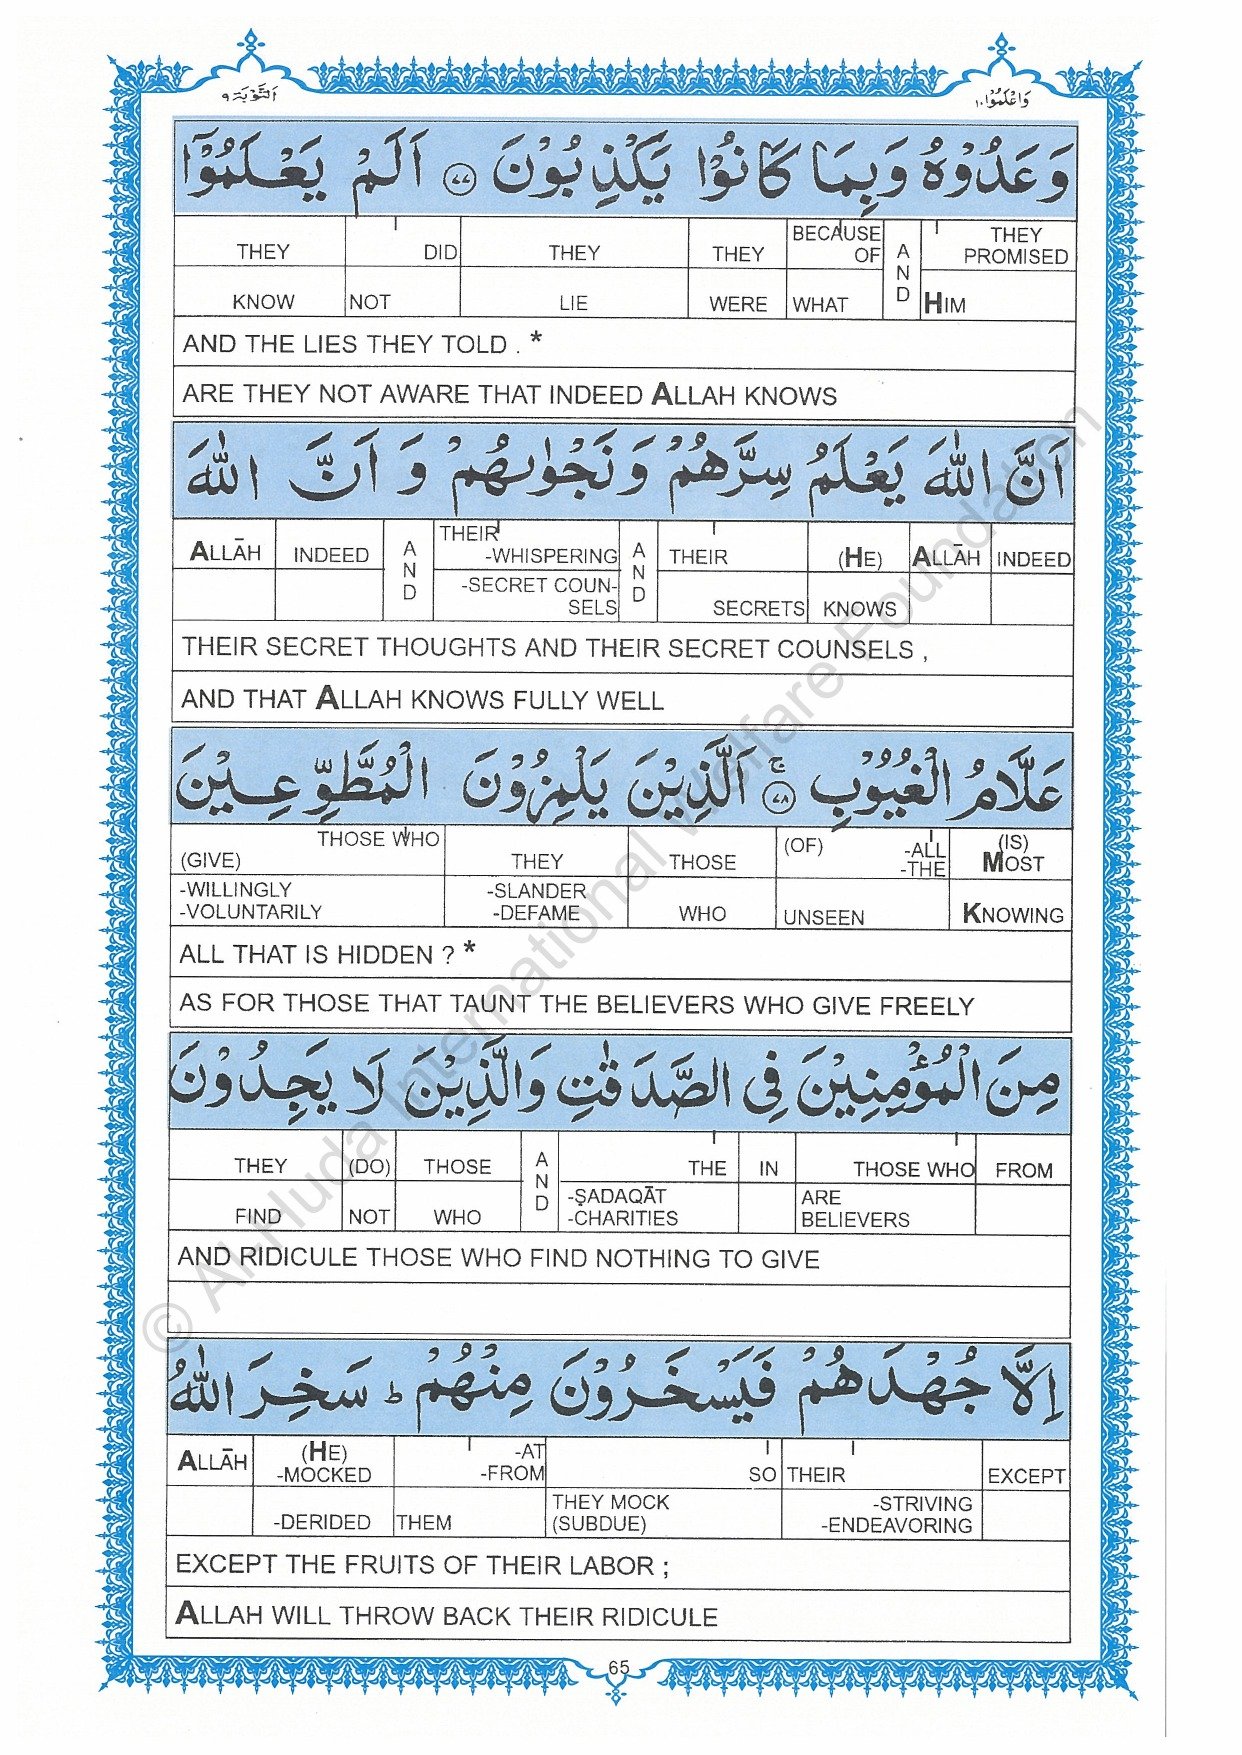 اَلتَّوْبَة ٩
وَاعْلَمُوْٓا ١٠
وَعَدُوْهُ وَبِمَا كَانُوْا يَكْذِبُوْنَ ﴿٧٧﴾ اَلَمْ يَعْلَمُوْٓا
THEY DID THEY THEY BECAUSE OF AND THEY PROMISED
KNOW NOT LIE WERE WHAT HIM
AND THE LIES THEY TOLD . *
ARE THEY NOT AWARE THAT INDEED ALLAH KNOWS
اَنَّ اللّٰهَ يَعْلَمُ سِرَّهُمْ وَنَجْوٰىهُمْ وَ اَنَّ اللّٰهَ
ALLĀH INDEED AND THEIR -WHISPERING AND THEIR (HE) ALLĀH INDEED
-SECRET COUN-SELS SECRETS KNOWS
THEIR SECRET THOUGHTS AND THEIR SECRET COUNSELS ,
AND THAT ALLAH KNOWS FULLY WELL
عَلَّامُ الْغُيُوْبِ ﴿٧٨﴾ ۚ اَلَّذِيْنَ يَلْمِزُوْنَ الْمُطَّوِّعِيْنَ
THOSE WHO (GIVE) THEY THOSE (OF) -ALL -THE (IS) MOST
-WILLINGLY -VOLUNTARILY -SLANDER -DEFAME WHO UNSEEN KNOWING
ALL THAT IS HIDDEN ? *
AS FOR THOSE THAT TAUNT THE BELIEVERS WHO GIVE FREELY
مِنَ الْمُؤْمِنِيْنَ فِى الصَّدَقٰتِ وَالَّذِيْنَ لَا يَجِدُوْنَ
THEY (DO) THOSE AND THE IN THOSE WHO FROM
FIND NOT WHO -ṢADAQĀT -CHARITIES ARE BELIEVERS
AND RIDICULE THOSE WHO FIND NOTHING TO GIVE
اِلَّا جُهْدَهُمْ فَيَسْخَرُوْنَ مِنْهُمْ ؕ سَخِرَ اللّٰهُ
ALLĀH (HE) -MOCKED -AT -FROM SO THEIR EXCEPT
-DERIDED THEM THEY MOCK (SUBDUE) -STRIVING -ENDEAVORING
EXCEPT THE FRUITS OF THEIR LABOR ;
ALLAH WILL THROW BACK THEIR RIDICULE
65
© Al-Huda International Welfare Foundation